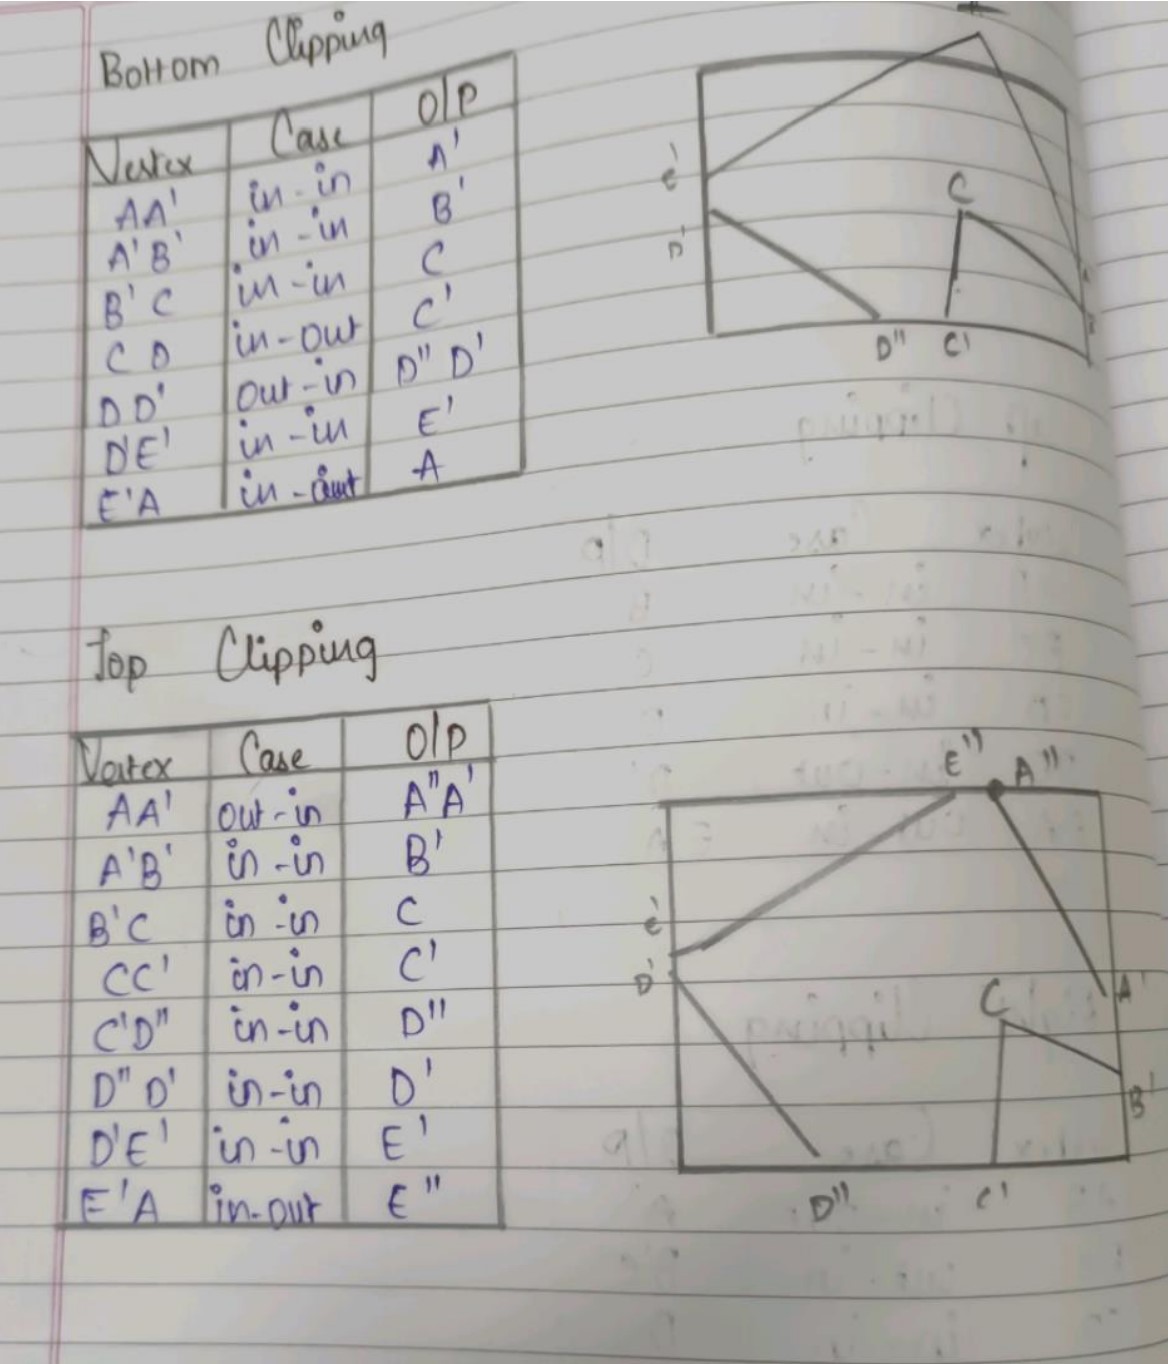 Bottom Clipping
Vertex Case O/P
AA' in-in A'
A'B' in-in B'
B'C in-in C
CD in-out C'
DD' out-in D" D'
D'E' in-in E'
E'A in-out A
E'
D'
C
B
D" C'
Top Clipping
Vertex Case O/P
AA' out-in A"A'
A'B' in-in B'
B'C in-in C
CC' in-in C'
C'D" in-in D"
D" D' in-in D'
D'E' in-in E'
E'A in-out E"
E" A"
E'
D'
C A'
B'
D" C'